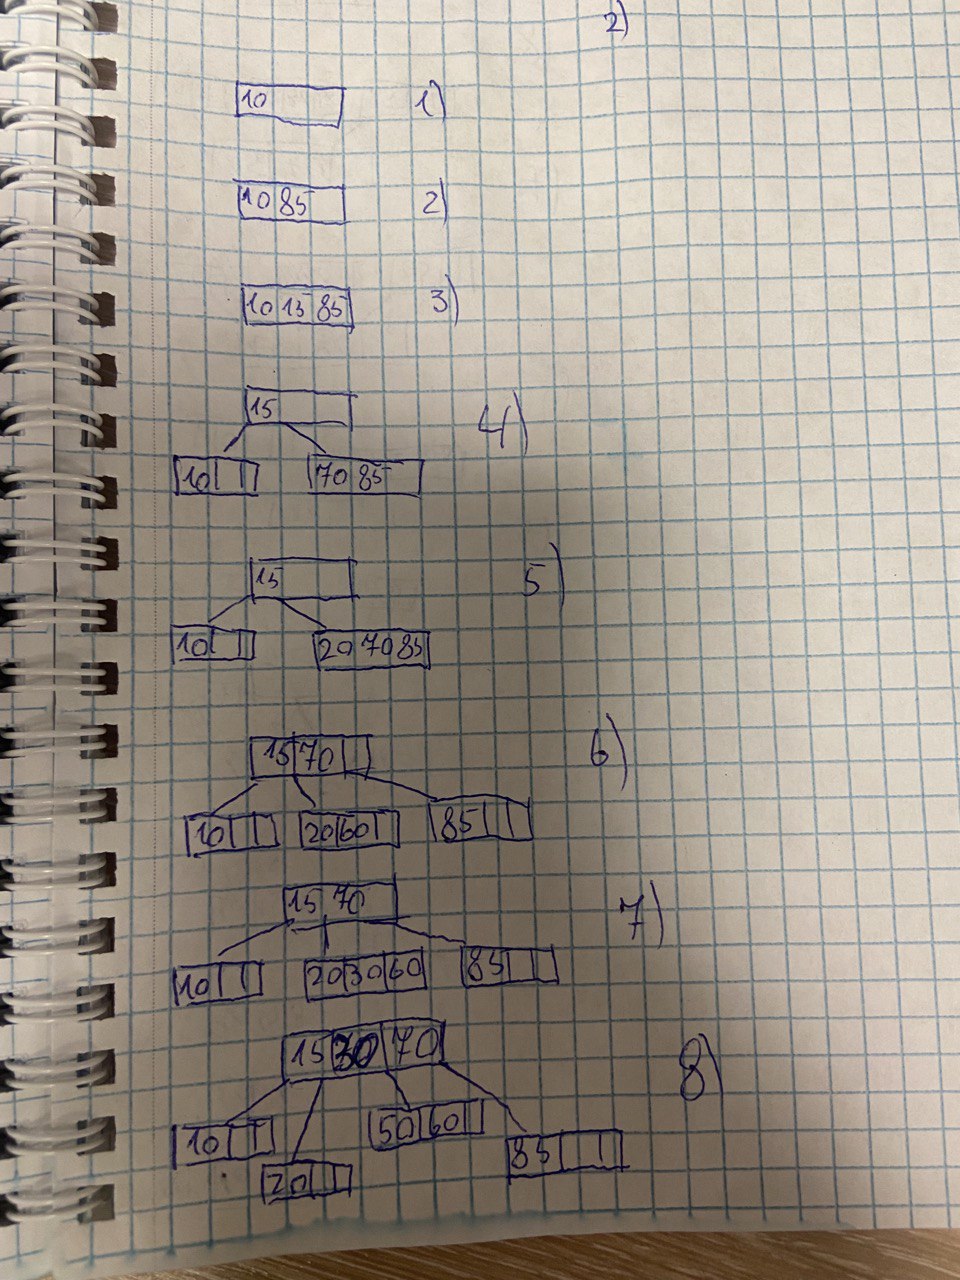 2)
10 1)
10 85 2)
10 15 85 3)
15 4)
10 70 85
15 5)
10 20 70 85
15 70 6)
10 20 60 85
15 70 7)
10 20 30 60 85
15 30 70 8)
10 50 60
20 85